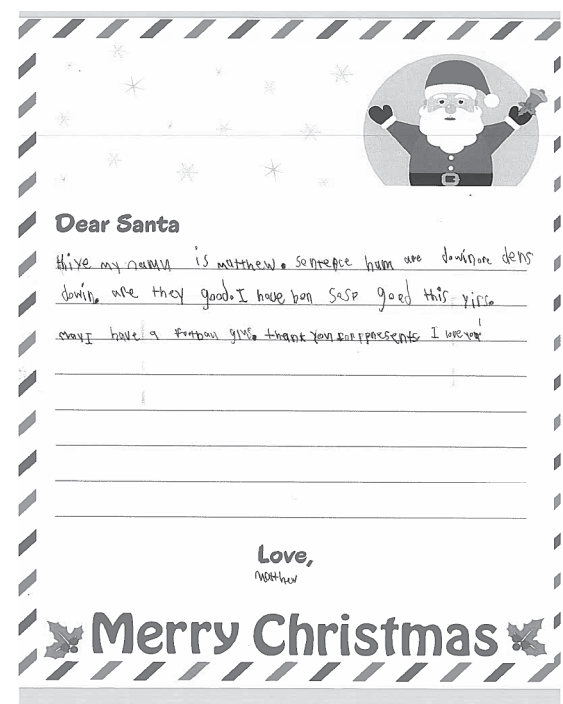 Dear Santa
my namu is matthew. sentence hum are dowin are dens
dowin. are they good. I have ben sasp goed this yirs.
mayI have a football give. thank you for presents I love you!
Love,
matthew
Merry Christmas